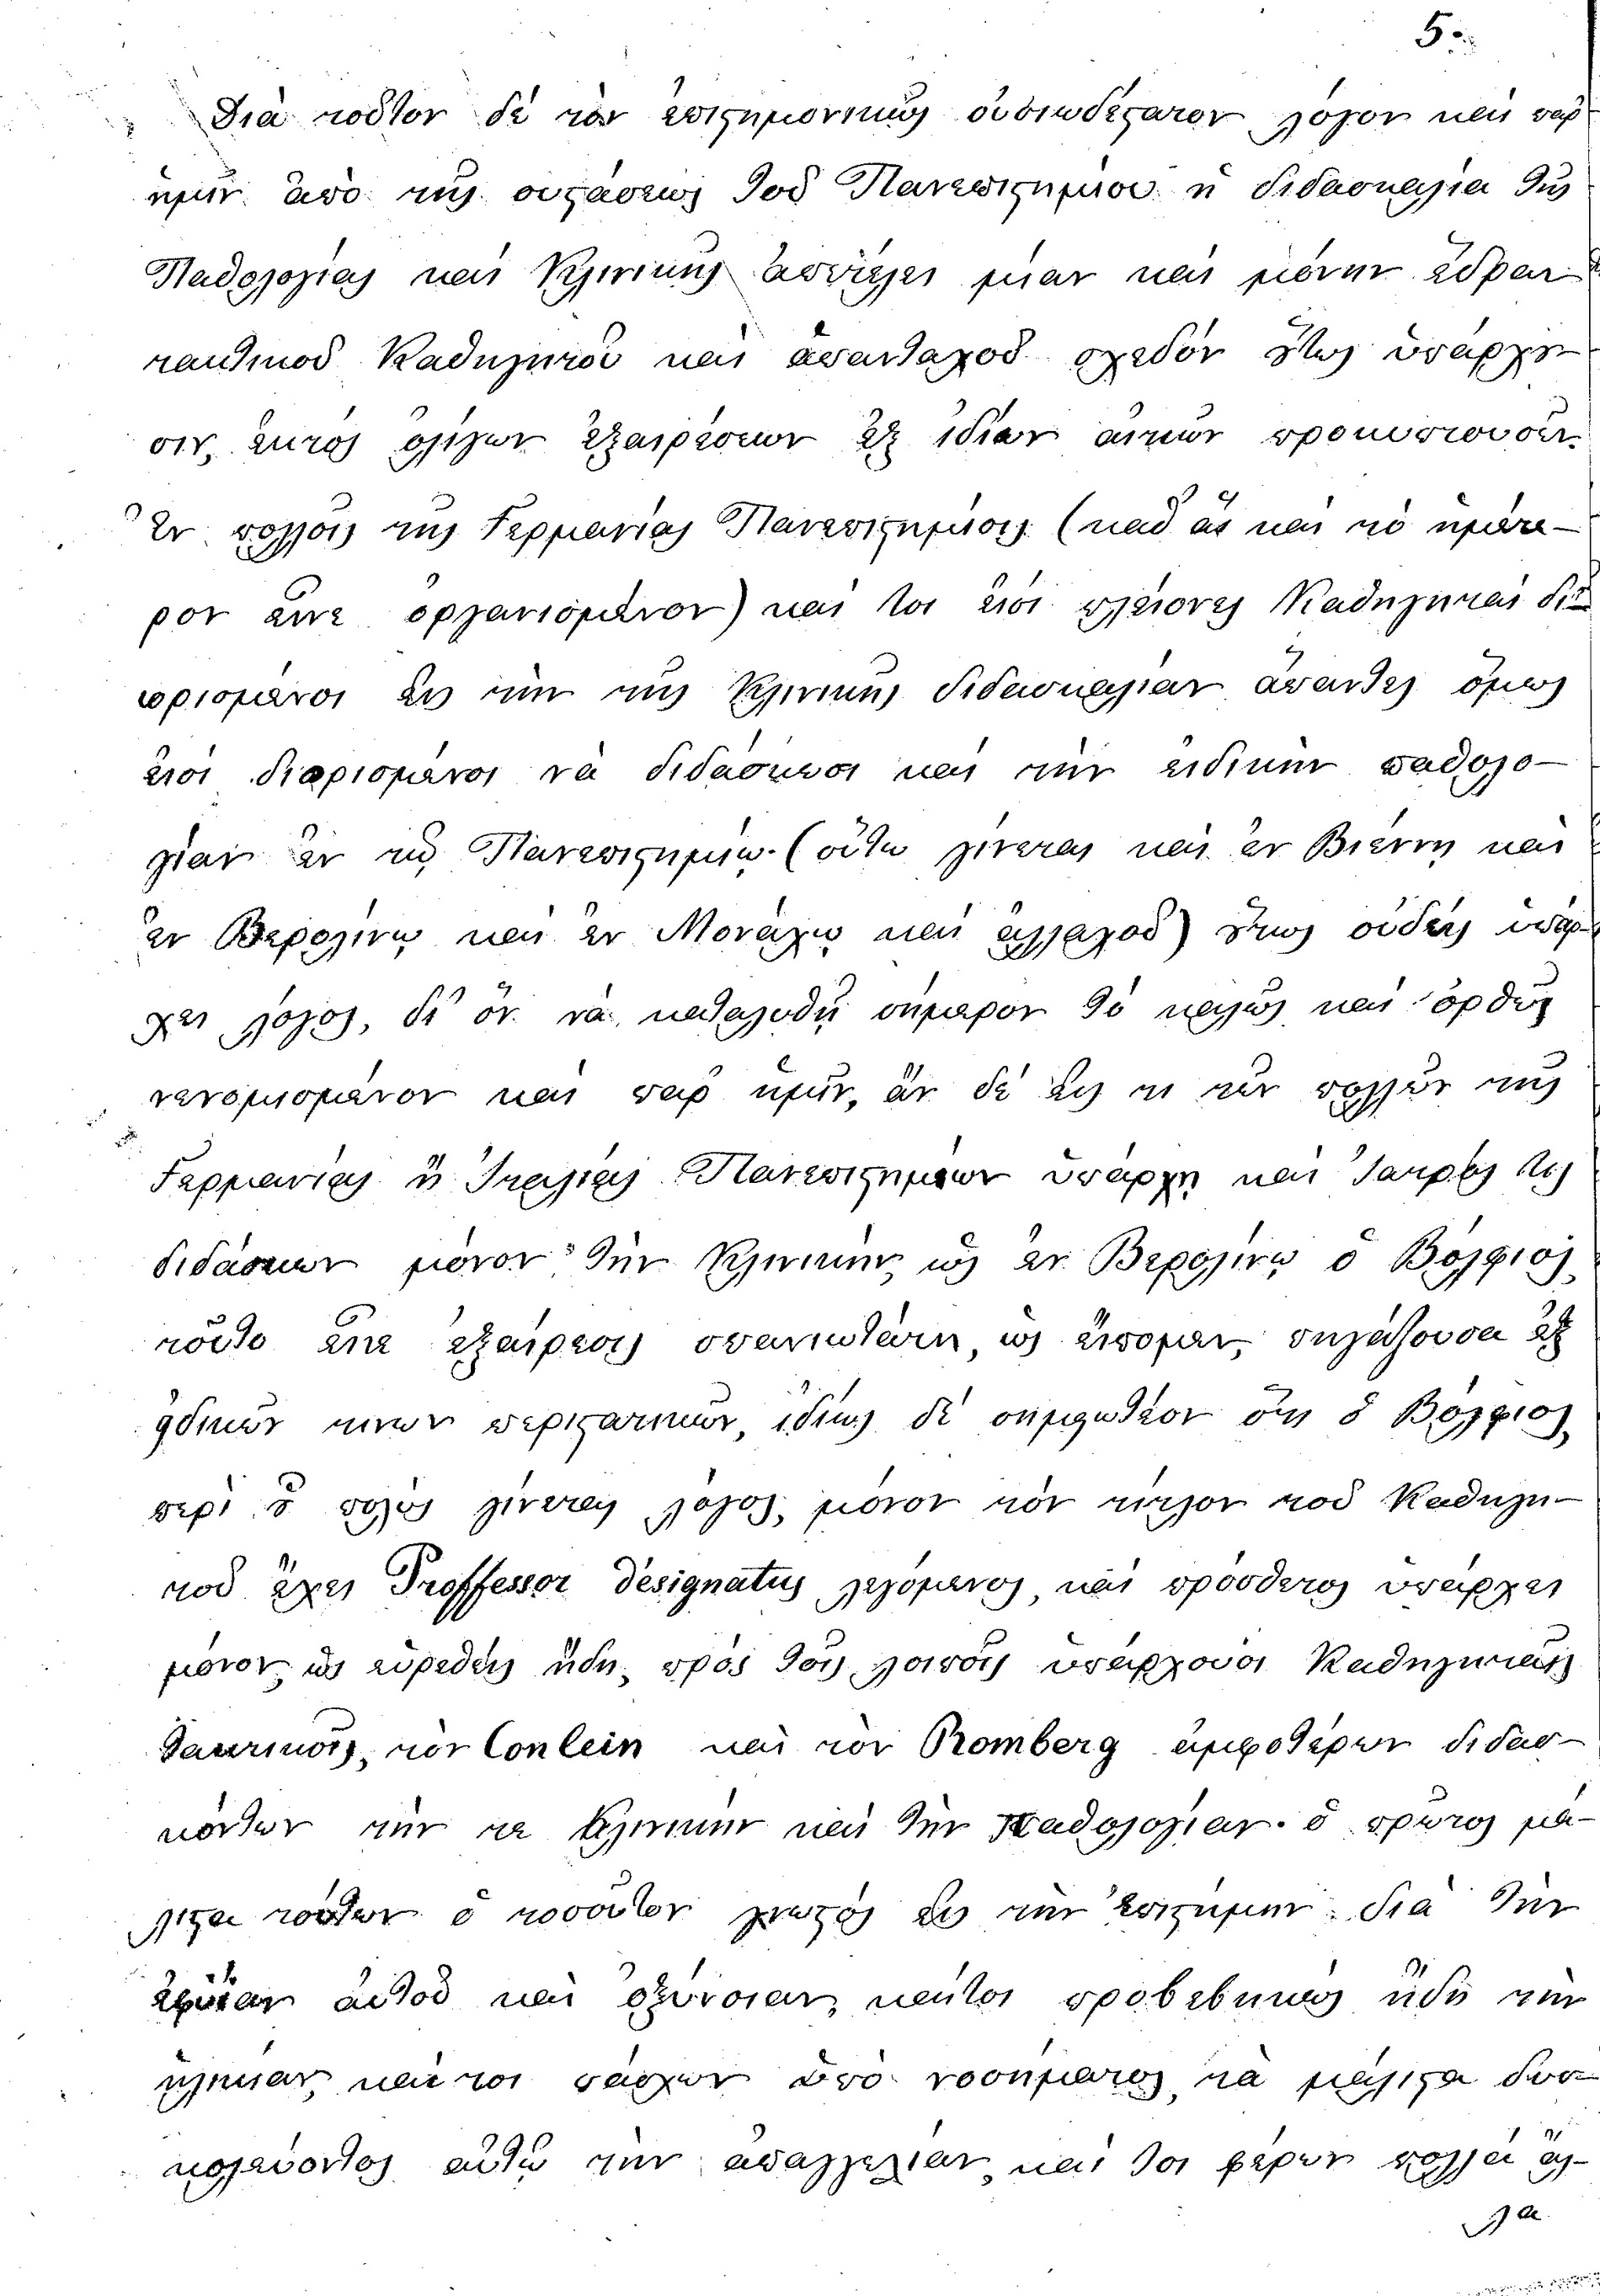 5.
Διὰ τοῦτον δὲ τὸν ἐπιστημονικῶς οὐσιωδέστατον λόγον καὶ παρ'
ἡμῖν ἀπὸ τῆς συστάσεως τοῦ Πανεπιστημίου ἡ διδασκαλία τῆς
Παθολογίας καὶ Κλινικῆς ἀπετέλει μίαν καὶ μόνην ἕδραν
τακτικοῦ Καθηγητοῦ καὶ ἁπανταχοῦ σχεδὸν οὕτως ὑπάρχου-
σιν, ἐκτὸς ὀλίγων ἐξαιρέσεων ἐξ ἰδίων αἰτιῶν προκυπτουσῶν.
Ἐν πολλοῖς τῆς Γερμανίας Πανεπιστημίοις (καθ' ἃ καὶ τὸ ἡμέτε-
ρον εἶνε ὀργανισμένον) καί τοι εἰσὶ πλείονες Καθηγηταὶ δι-
ωρισμένοι εἰς τὴν τῆς Κλινικῆς διδασκαλίαν ἅπαντες ὅμως
εἰσὶ διορισμένοι νὰ διδάσκωσι καὶ τὴν εἰδικὴν παθολο-
γίαν ἐν τῷ Πανεπιστημίῳ. (οὕτω γίνεται καὶ ἐν Βιέννῃ καὶ
ἐν Βερολίνῳ καὶ ἐν Μονάχῳ καὶ ἀλλαχοῦ) οὕτως οὐδεὶς ὑπάρ-
χει λόγος, δι' ὃν νὰ καταλυθῇ σήμερον τὸ καλῶς καὶ ὀρθῶς
νενομισμένον καὶ παρ' ἡμῖν, ἂν δὲ εἴς τι τῶν πολλῶν τῆς
Γερμανίας ἢ Ἰταλίας Πανεπιστημίων ὑπάρχῃ καὶ Ἰατρός τις
διδάσκων μόνον τὴν Κλινικήν, ὡς ἐν Βερολίνῳ ὁ Βόλφιος,
τοῦτο εἶνε ἐξαίρεσις σπανιωτάτη, ὡς εἴπομεν, πηγάζουσα ἐξ
εἰδικῶν τινων περιστατικῶν, ἰδίως δὲ σημειωτέον ὅτι ὁ Βόλφιος,
περὶ οὗ πολὺς γίνεται λόγος, μόνον τὸν τίτλον τοῦ Καθηγη-
τοῦ ἔχει Proffessor désignatus λεγόμενος, καὶ πρόσθετος ὑπάρχει
μόνον, ὡς εὑρεθεὶς ἤδη, πρὸς τοῖς λοιποῖς ὑπάρχουσι Καθηγηταῖς
τακτικοῖς, τὸν Conlein καὶ τὸν Romberg ἀμφοτέρων διδασ-
κόντων τήν τε Κλινικὴν καὶ τὴν Παθολογίαν. ὁ πρῶτος μά-
λιστα τούτων ὁ τοσοῦτον γνωστὸς εἰς τὴν ἐπιστήμην διὰ τὴν
ἐμβρίθειαν αὐτοῦ καὶ ὀξύνοιαν, καίτοι προβεβηκὼς ἤδη τὴν
ἡλικίαν, καί τοι πάσχων ὑπὸ νοσήματος, τὰ μάλιστα δυσ-
κολεύοντος αὐτῷ τὴν ἀπαγγελίαν, καί τοι φέρων πολλὰ ἄλ-
λα